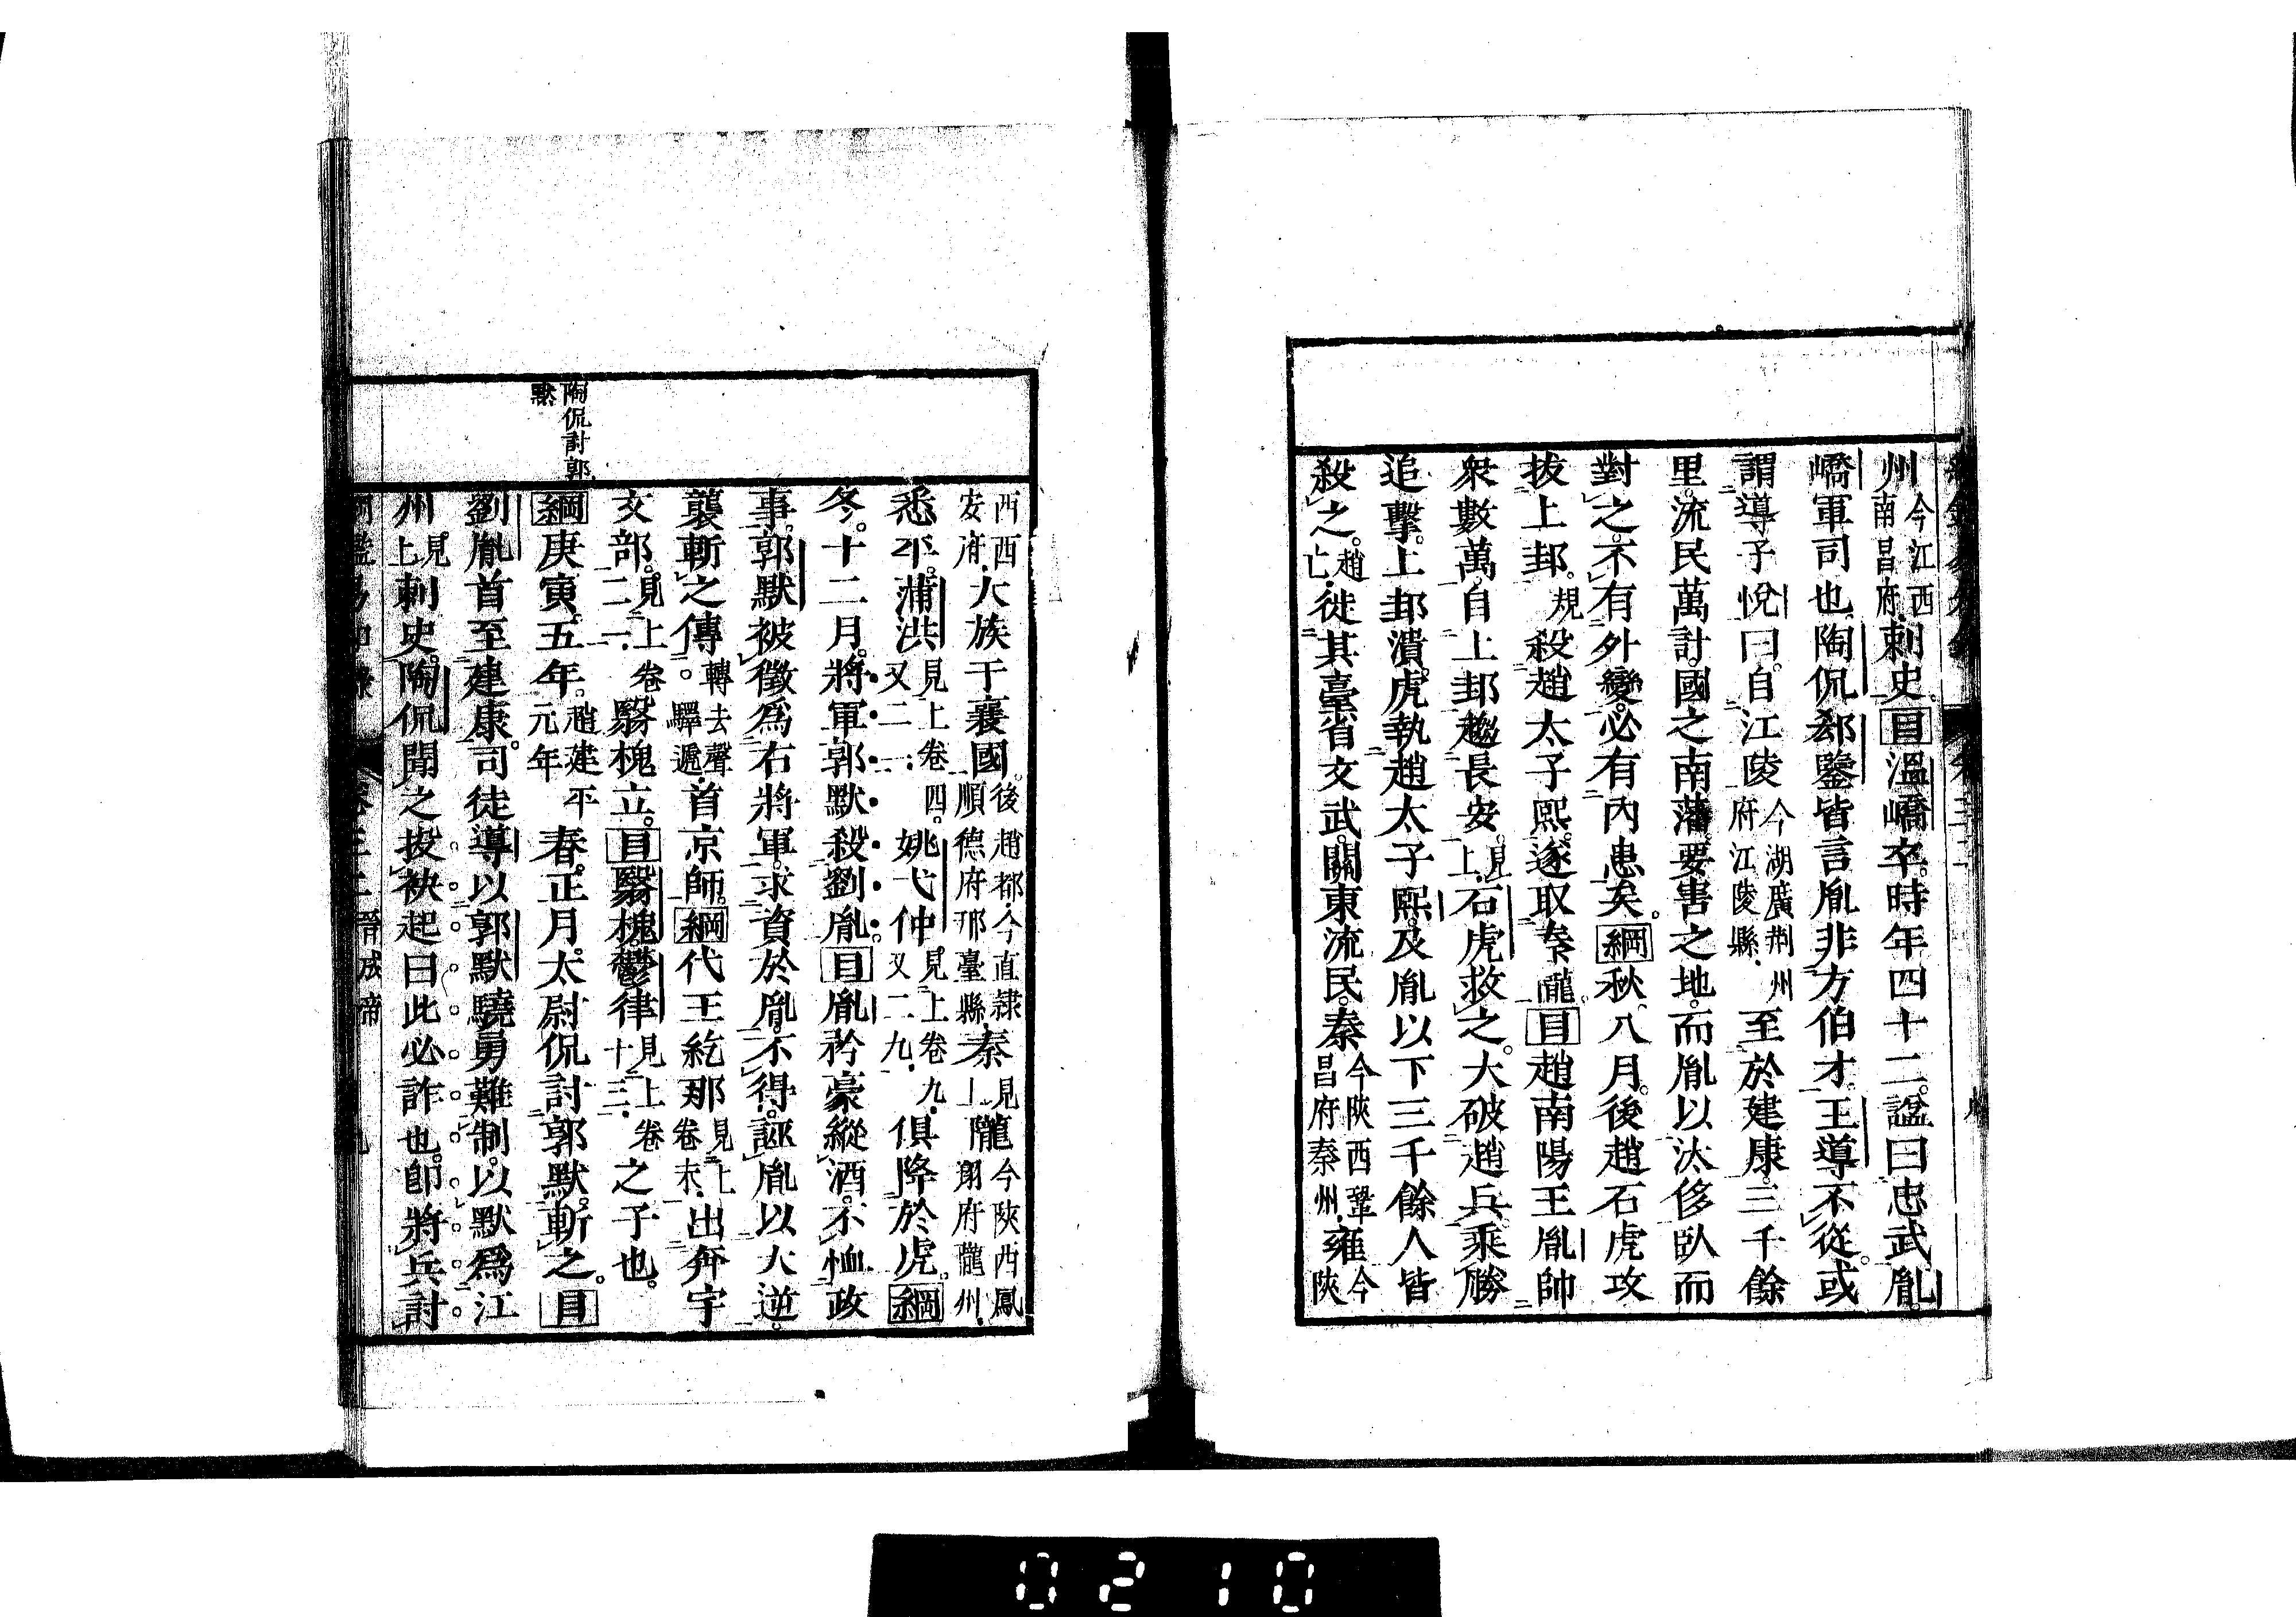 州今江西南昌府刺史。目溫嶠卒。時年四十二。諡曰忠武。胤
嶠軍司也。陶侃郄鑒皆言胤非方伯才。王導不從。或
謂導子悅曰。自江陵今湖廣荆州府江陵縣至於建康。三千餘
里。流民萬計。國之南藩。要害之地。而胤以汰侈臥而
對之。不有外變。必有內患矣。綱秋。八月。後趙石虎攻
拔上邽。規殺趙太子熙。遂取秦隴。目趙南陽王胤帥
衆數萬。自上邽趨長安。見上石虎救之。大破趙兵。乘勝
追擊。上邽潰。虎執趙太子熙。及胤以下三千餘人皆
殺之。趙亡徙其臺省文武。關東流民。秦今陝西鞏昌府秦州雍今陝
西西安府大族于襄國。後趙都今直隸順德府邢臺縣秦見上隴今陝西鳳翔府隴州
悉平。蒲洪見上卷四又二一姚弋仲見上卷九又二九俱降於虎。綱
冬。十二月。將軍郭默殺劉胤。目胤矜豪縱酒。不恤政
事。郭默被徵爲右將軍。求資於胤。不得。誣胤以大逆。
襲斬之。傳轉去聲驛遞首京師。綱代王紇那見上卷末出奔宇
文部。見上卷二一翳槐立。目翳槐。鬱律見上卷十三之子也。
綱庚寅。五年。趙建平元年春。正月。太尉侃討郭默。斬之。目
劉胤首至建康。司徒導以郭默驍勇難制。以默爲江
州見上刺史。陶侃聞之。投袂起曰。此必詐也。卽將兵討
陶侃討郭
默
晉成帝
0210